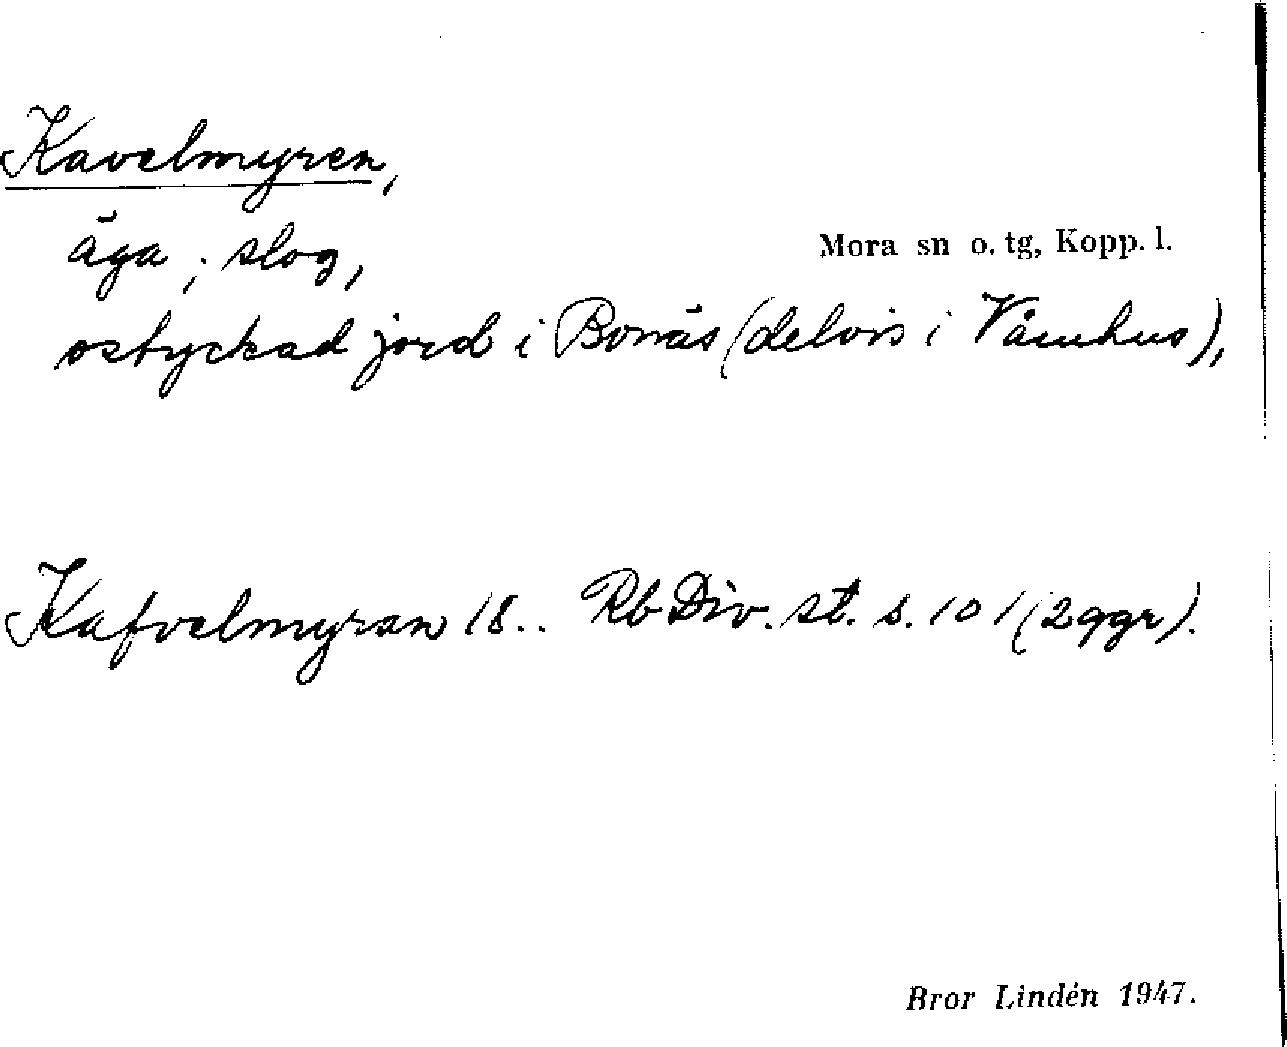 Kavelmyren,
äga; slog,
Mora sn o. tg, Kopp. l.
ostyckad jord i Bonäs (delvis i Våmhus),
Kafvelmyran 18.. Rb Div. st. s. 101 (2 ggr).
Bror Lindén 1947.